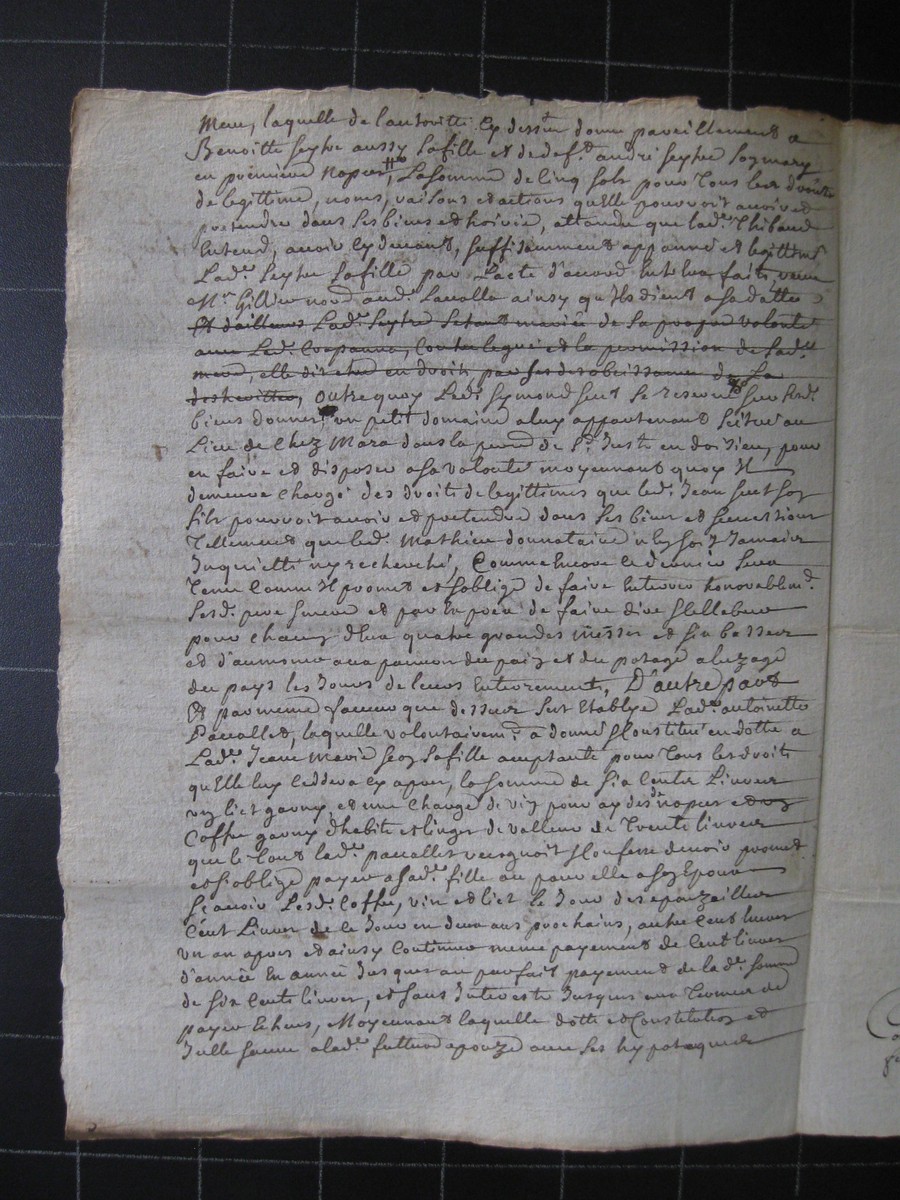 mere, laquelle de l'autoritté Cy dessus donne pareillement a
Benoitte Seytre aussy Sa fille et de def.t andré Seytre Son mary
en premiere nopce, La Somme de Cinq Sols pour Tous Les droits
de legittime, noms, raisons et actions qu'Elle pourroit avoir et
pretendre dans Ses biens et hoirie, attandu que lad.e Thibaud
Entend, avoir Cy devant, Suffisamment appanné et legittimé
Lad.e Seytre Sa fille par L'acte d'accord Entre Eux fait, receu
M.r Gillier not. aud. Lavalla ainsy qu'ils dient a sa datte
Et d'ailleurs Lad.e Seytre S'etant mariée de Sa propre volonté
avec Led. Crapanne, Contre le gré et la permission de Sad.e
mere, elle Seroit en droit, par Ses desobeissances de La
desheritter, outre quoy Led. Seymond Seut Se reserve Sur Sesd.
biens donnés, un petit domaine a luy appartenant Scitué au
Lieu de Chez Mara dans la paroisse de S.t Just en doisieu, pour
en faire et disposer a Sa volonté moyennant quoy Il
demeure Chargé des droits de legittimes que led. Jean Seut Son
fils pourroit avoir et pretendre dans Ses biens et Successions
Tellement que led. Mathieu donnataire n'en Soit Jamais
Inquietté ny recherché, Comme Encore Ce dernier Sera
Tenu Comm'Il promet et S'oblige de faire Enterrer honorablem.t
Sesd. pere et mere et par un pretre de faire dire et Cellebrer
pour Chacun d'Eux quatre grandes messes et Six basses
et d'aumoner aux pauvres du pain et du potage a l'uzage
du pays les Jours de leurs Enterrements, D'autre part
Et par meme faveur que dessus S'est Etablye Lad.e antoinette
Pacallet, laquelle volontairem.t a donné et Constitué en dotte a
Lad.e Jeanne Marie Seon Sa fille acceptante pour Tous Les droits
qu'Elle luy Ceddera Cy apres, la Somme de Six Cents Livres
un lict garny et une Charge de vin pour ay des de nopces et un
Coffre garny d'habits et linges de valleur de Trente livres
que le Tout lad.e pacallet reconnoit et Confesse devoir promet
et S'oblige payer a Sad.e fille ou pour elle a Son Epoux
Scavoir Lesd. Coffre, vin et lict le Jour des epouzailles
Cent Livres de Ce Jour en deux ans prochains, autre Cent livres
un an apres et ainsy Continuer meme payement de Cent livres
d'année En année Jusques au parfait payement de lad.e Somme
de Six Cents livres, et Sans Interests Jusques aux Termes de
payer Echeus, Moyennant laquelle dotte et Constitution et
Icelle Sauve a lad.e future epouze avec Ses hypoteques